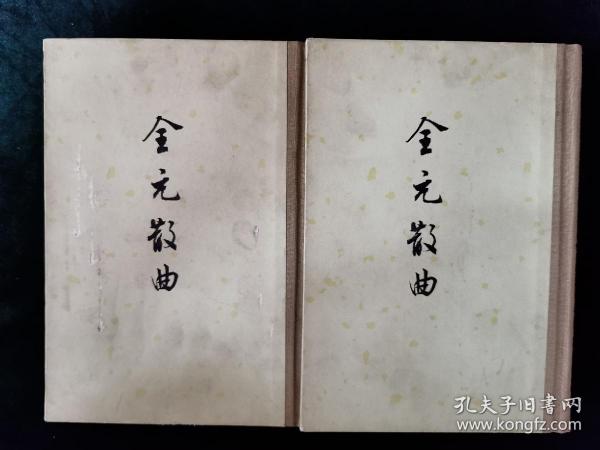 全元散曲
全元散曲
孔夫子旧书网
www.kongfz.com